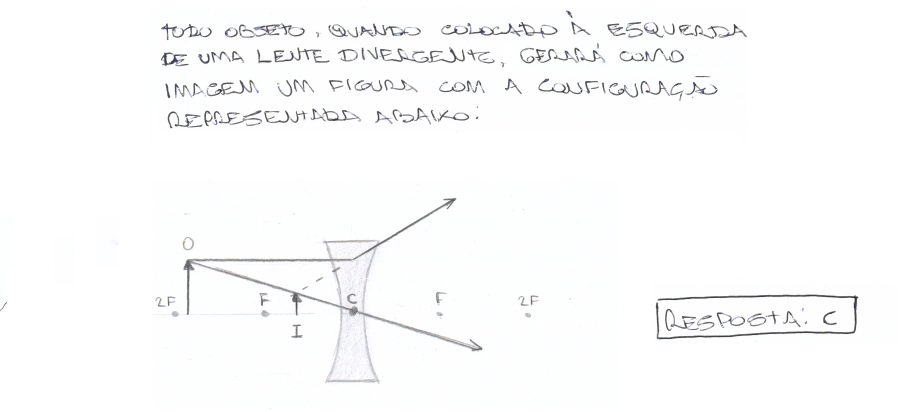 TODO OBJETO, QUANDO COLOCADO À ESQUERDA
DE UMA LENTE DIVERGENTE, GERARÁ COMO
IMAGEM UM FIGURA COM A CONFIGURAÇÃO
REPRESENTADA ABAIXO:
O
2F F C F 2F
I
RESPOSTA: C